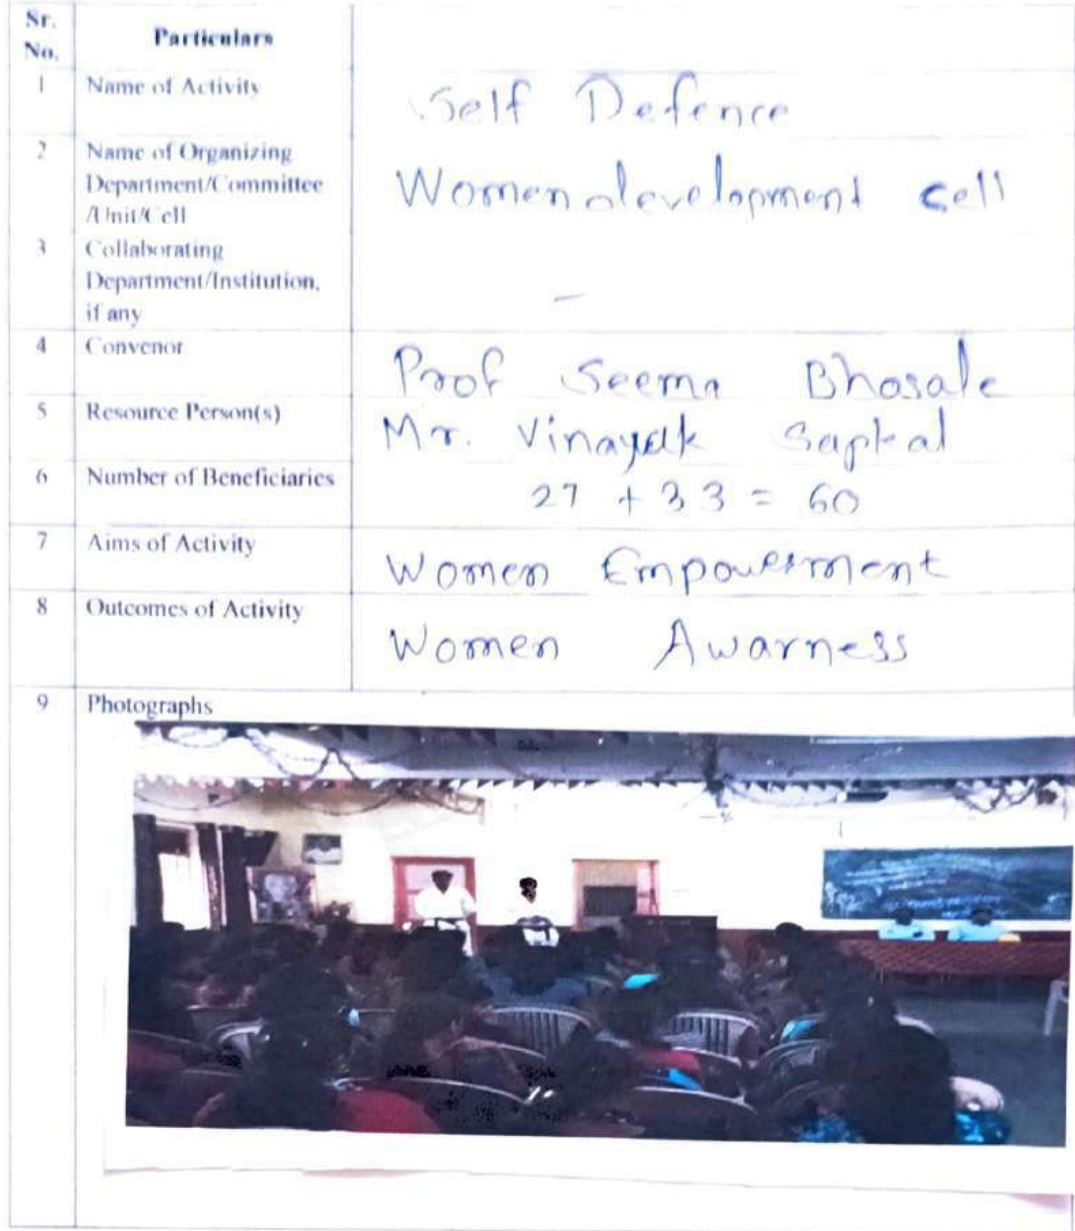 Sr.
No.
Particulars
1 Name of Activity Self Defence
2 Name of Organizing
Department/Committee
/Unit/Cell
Women development cell
3 Collaborating
Department/Institution,
if any
-
4 Convenor Prof Seema Bhosale
5 Resource Person(s) Mr. Vinayak Sapkal
6 Number of Beneficiaries 27 + 33 = 60
7 Aims of Activity Women Empowerment
8 Outcomes of Activity Women Awarness
9 Photographs